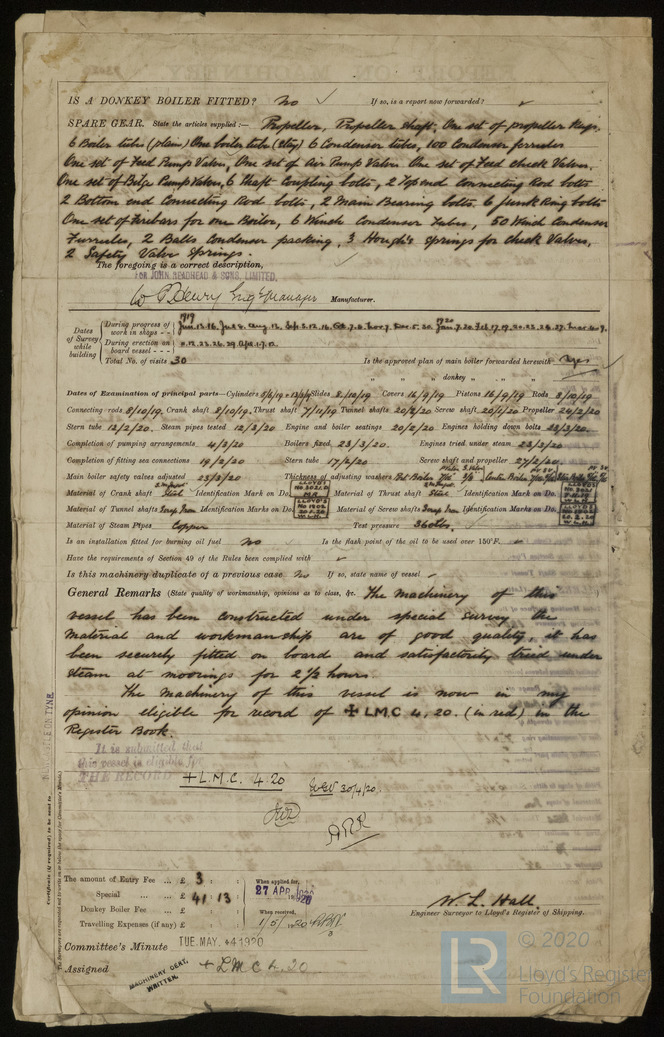 IS A DONKEY BOILER FITTED? No ✓ If so, is a report now forwarded? ✓
SPARE GEAR. State the articles supplied:— Propeller, Propeller shaft, One set of propeller keys,
6 Boiler tubes (plain) One boiler tube (stay) 6 Condenser tubes, 100 Condenser ferrules
One set of Feed Pump Valves, One set of Air Pump Valves One set of Feed check Valves.
One set of Bilge Pump Valves, 6 Shaft Coupling bolts, 2 Top end connecting Rod bolts
2 Bottom end Connecting Rod bolts, 2 Main Bearing bolts, 6 Junk Ring bolts
One set of Firebars for one Boiler, 6 Winch Condenser Tubes, 50 Winch Condenser
Ferrules, 2 Balls Condenser packing, 3 Hough's Springs for check Valves,
2 Safety Valve Springs.
The foregoing is a correct description,
FOR JOHN READHEAD & SONS, LIMITED.
Manufacturer.
Dates of Survey while building
During progress of work in shops - -
1919
1920
During erection on board vessel - - -
Total No. of visits 30
Is the approved plan of main boiler forwarded herewith yes
" " " donkey " " "
Dates of Examination of principal parts—Cylinders Slides 8/10/19 Covers 16/9/19 Pistons 16/9/19 Rods 8/10/19
Connecting rods 8/10/19. Crank shaft 8/10/19. Thrust shaft 7/11/19 Tunnel shafts 20/2/20 Screw shaft 20/2/20 Propeller 24/2/20
Stern tube 12/2/20. Steam pipes tested 12/3/20 Engine and boiler seatings 20/2/20 Engines holding down bolts 23/3/20.
Completion of pumping arrangements 4/3/20 Boilers fixed 23/3/20. Engines tried under steam 23/3/20
Completion of fitting sea connections 19/2/20 Stern tube 17/2/20 Screw shaft and propeller 27/2/20
Main boiler safety valves adjusted 23/3/20 Thickness of adjusting washers
Material of Crank shaft Steel Identification Mark on Do. Material of Thrust shaft Steel Identification Mark on Do.
Material of Tunnel shafts Scrap Iron Identification Marks on Do. Material of Screw shafts Scrap Iron Identification Marks on Do.
Material of Steam Pipes Copper Test pressure 360 lbs.
Is an installation fitted for burning oil fuel No Is the flash point of the oil to be used over 150°F.
Have the requirements of Section 49 of the Rules been complied with
Is this machinery duplicate of a previous case No If so, state name of vessel
General Remarks (State quality of workmanship, opinions as to class, &c. The machinery of this
vessel has been constructed under special survey the
material and workmanship are of good quality, it has
been securely fitted on board and satisfactorily tried under
steam at moorings for 2½ hours.
The machinery of this vessel is now in my
opinion eligible for record of ✠ LMC 4, 20. (in red) in the
Register Book.
It is submitted that
this vessel is eligible for
THE RECORD
+ L.M.C. 4.20
30/4/20
The amount of Entry Fee ... £ 3 : :
Special ... ... £ 41 : 13 :
Donkey Boiler Fee ... £ : :
Travelling Expenses (if any) £ : :
When applied for,
27 APR 1920
When received,
1/5/1920
W. L. Hall.
Engineer Surveyor to Lloyd's Register of Shipping.
Committee's Minute TUE. MAY. 4 1920
Assigned + LMC 4.20
MACHINERY CERT. WRITTEN.
Certificate (if required) to be sent to
© 2020
LR
Lloyd's Register
Foundation